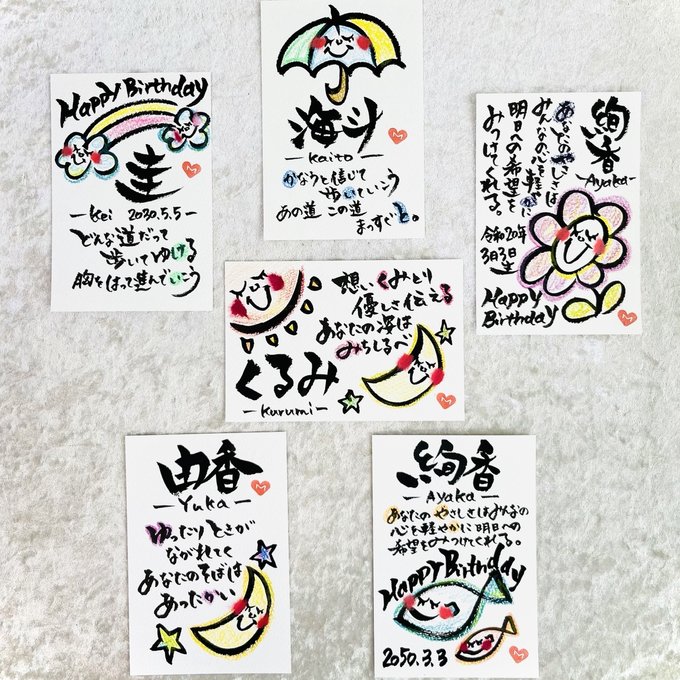 Happy Birthday
圭
-Kei 2030.5.5-
どんな道だって
歩いてゆける
胸をはって進んでいこう
海斗
-Kaito-
かならうと信じて
歩いていこう
あの道 この道
まっすぐと。
絢香
-Ayaka-
あなたのやさしさは
みんなの心を軽やかに
明日への希望を
みつけてくれる。
令和20年
3月3日
生
Happy
Birthday
想いくみとり
優しさ伝える
あなたの姿は
みちしるべ
くるみ
-Kurumi-
由香
-Yuka-
ゆったりときが
ながれてく
あなたのそばは
あったかい
絢香
-Ayaka-
あなたのやさしさはみんなの
心を軽やかに明日への
希望をみつけてくれる。
Happy Birthday
2050.3.3